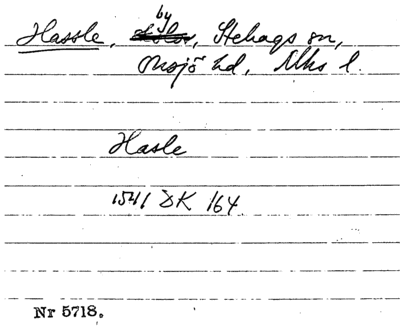 Hassle, by, Stehags sn,
Onsjö hd, Mhs l.
Hasle
1541 DK 164
Nr 5718.